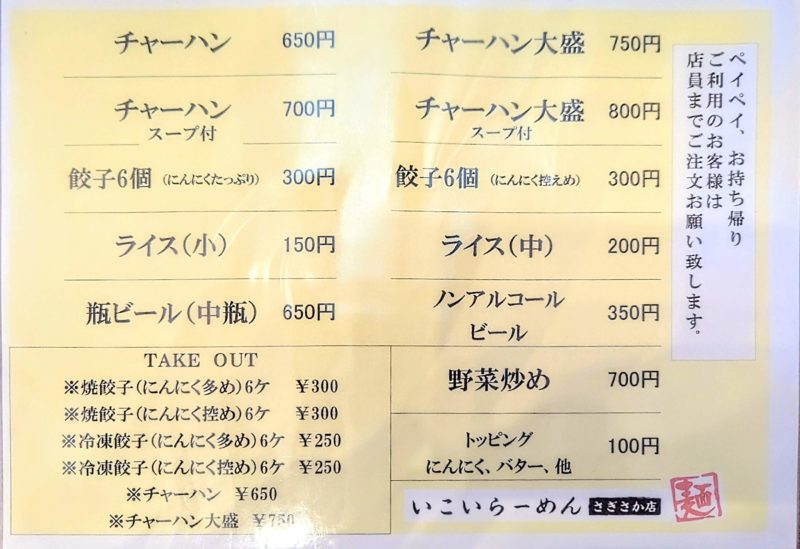 チャーハン 650円
チャーハン大盛 750円
チャーハン 700円
スープ付
チャーハン大盛 800円
スープ付
餃子6個 (にんにくたっぷり) 300円
餃子6個 (にんにく控えめ) 300円
ライス(小) 150円
ライス(中) 200円
瓶ビール(中瓶) 650円
ノンアルコール
ビール 350円
TAKE OUT
※焼餃子(にんにく多め)6ケ ¥300
※焼餃子(にんにく控め)6ケ ¥300
※冷凍餃子(にんにく多め)6ケ ¥250
※冷凍餃子(にんにく控め)6ケ ¥250
※チャーハン ¥650
※チャーハン大盛 ¥750
野菜炒め 700円
トッピング
にんにく、バター、他 100円
いこいらーめん さぎさか店
麺
ペイペイ、お持ち帰り
ご利用のお客様は
店員までご注文お願い致します。